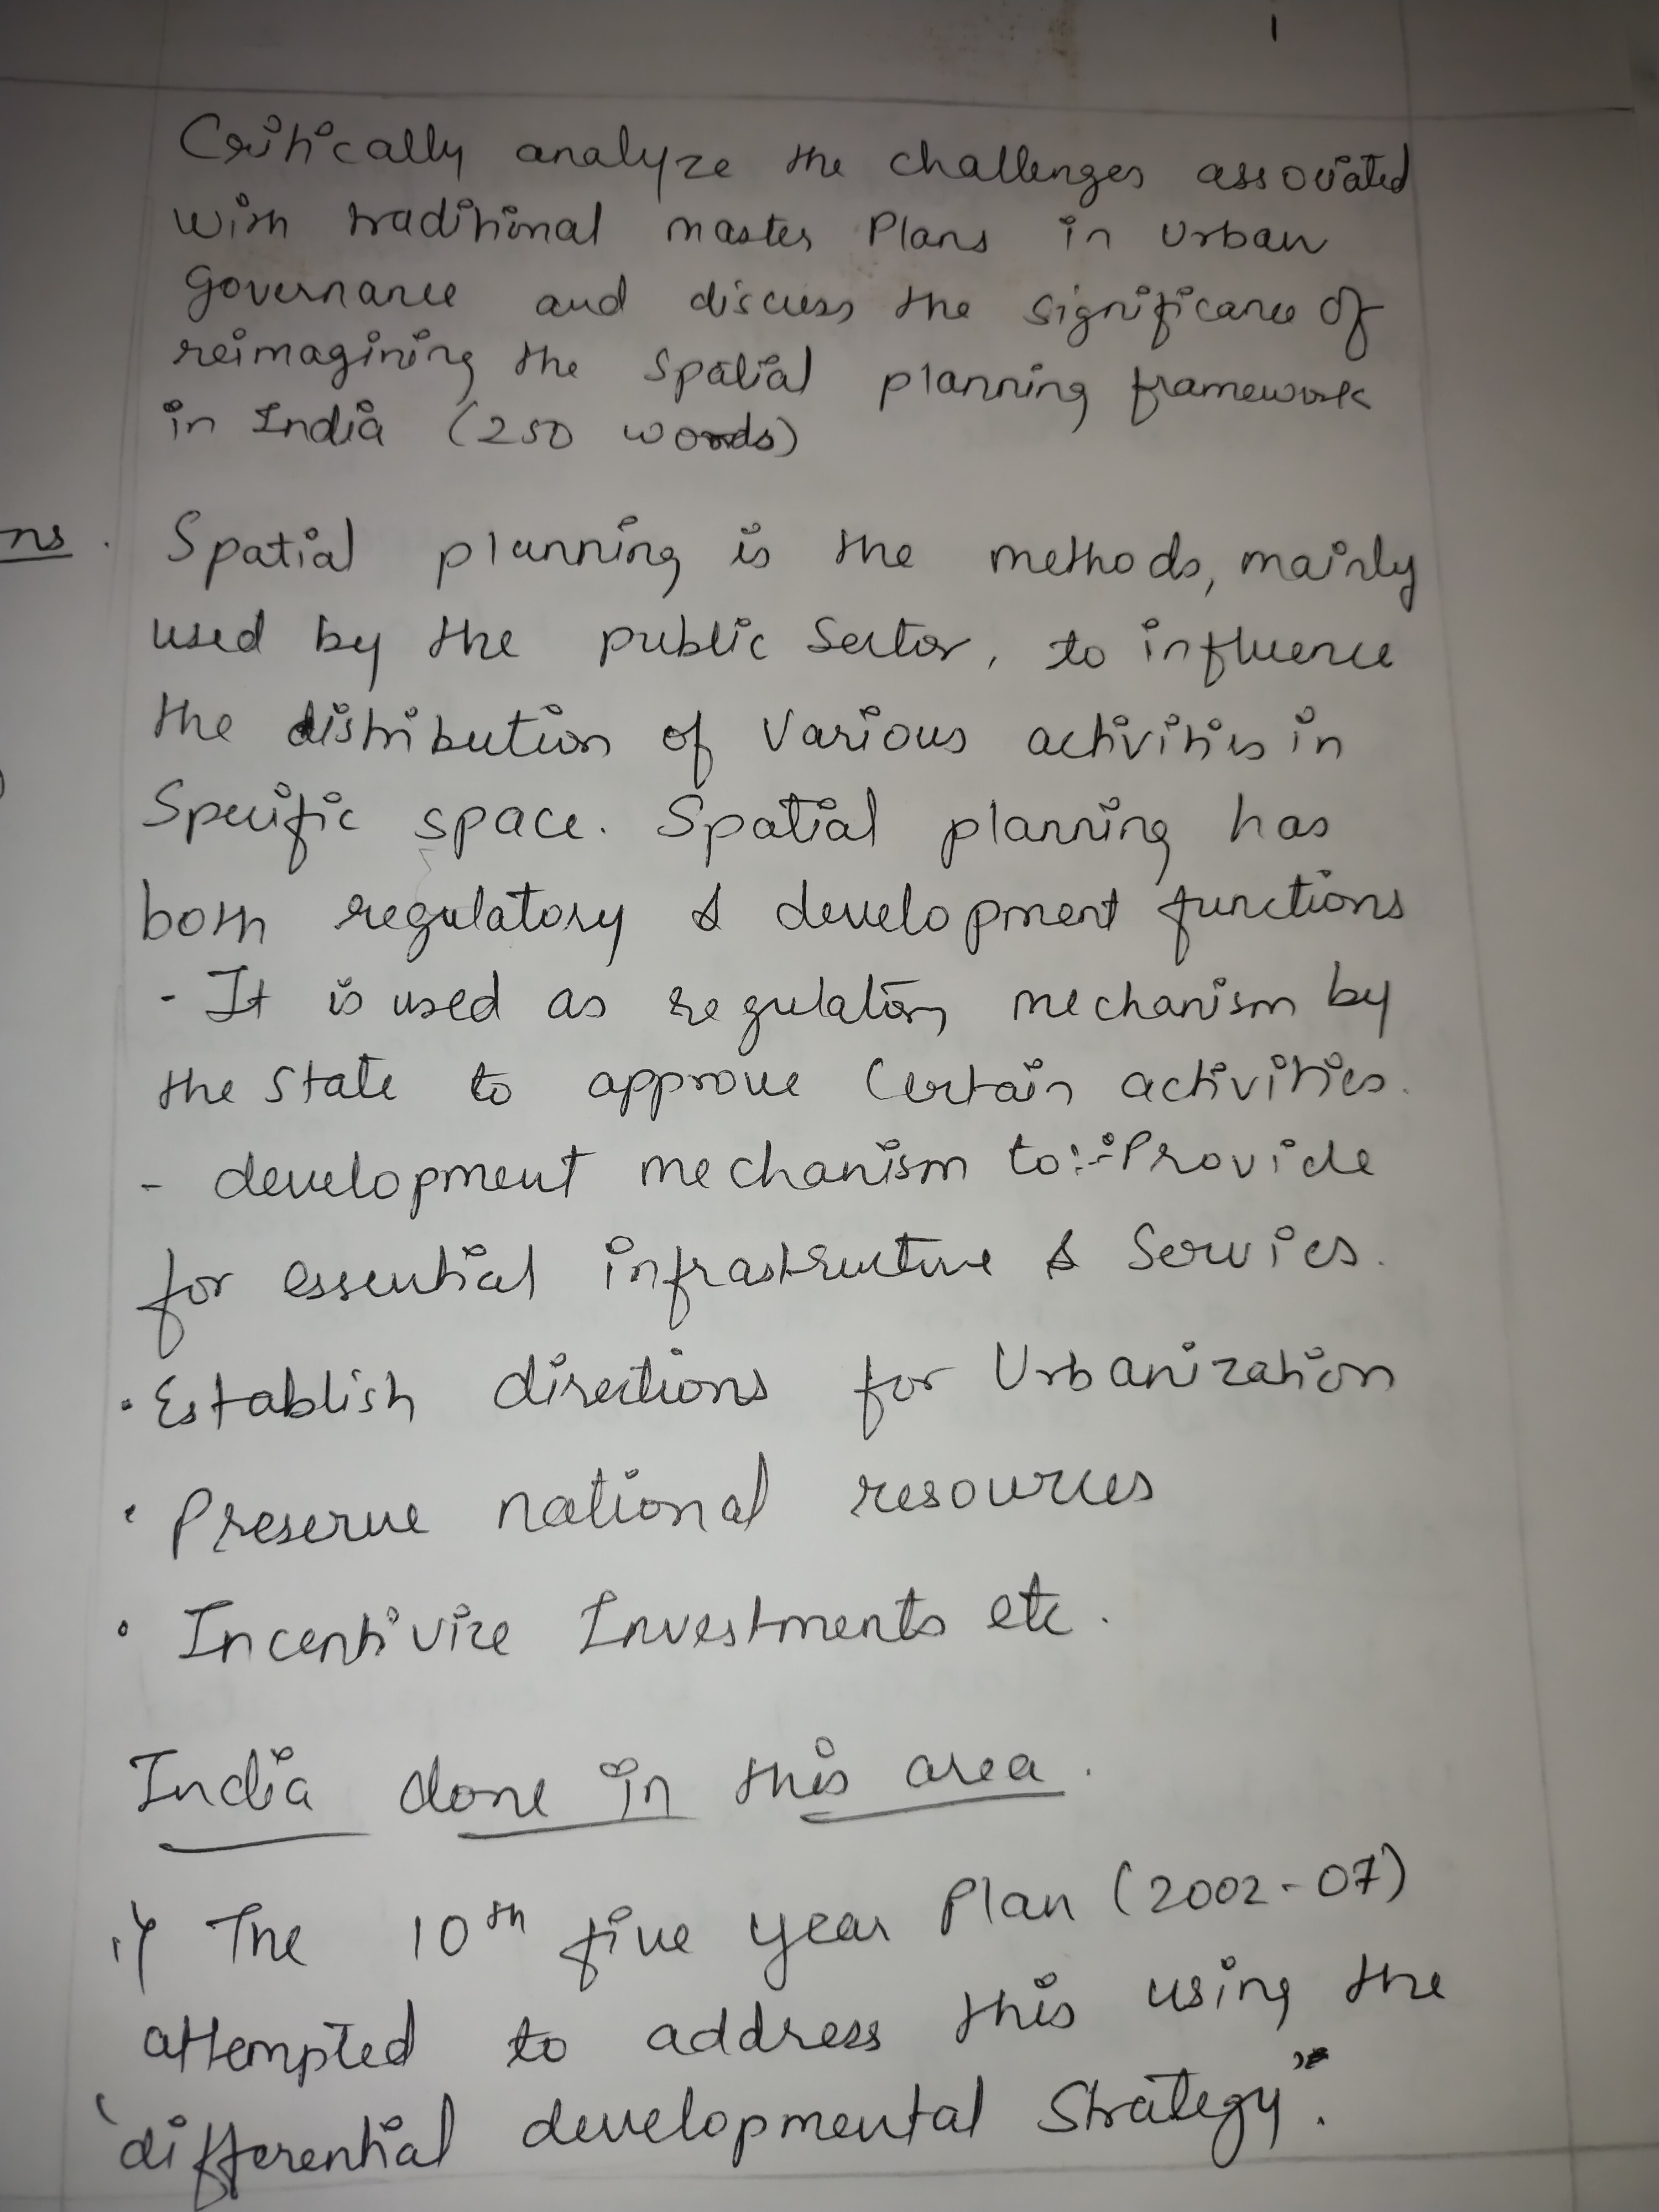 1
Critically analyze the challenges associated
with traditional master Plans in Urban
governance and discuss the significance of
reimagining the spatial planning framework
in India (250 words)
ns. Spatial planning is the methods, mainly
used by the public Sector, to influence
the distribution of Various activities in
Specific space. Spatial planning has
both regulatory & development functions
- It is used as regulatory mechanism by
the State to approve Certain activities.
- development mechanism to:- Provide
for essential infrastructure & Services.
• Establish directions for Urbanization
• Preserve national resources
• Incentivize Investments etc.
India done in this area.
i) The 10th five year Plan (2002-07)
attempted to address this using the
'differential developmental Strategy".